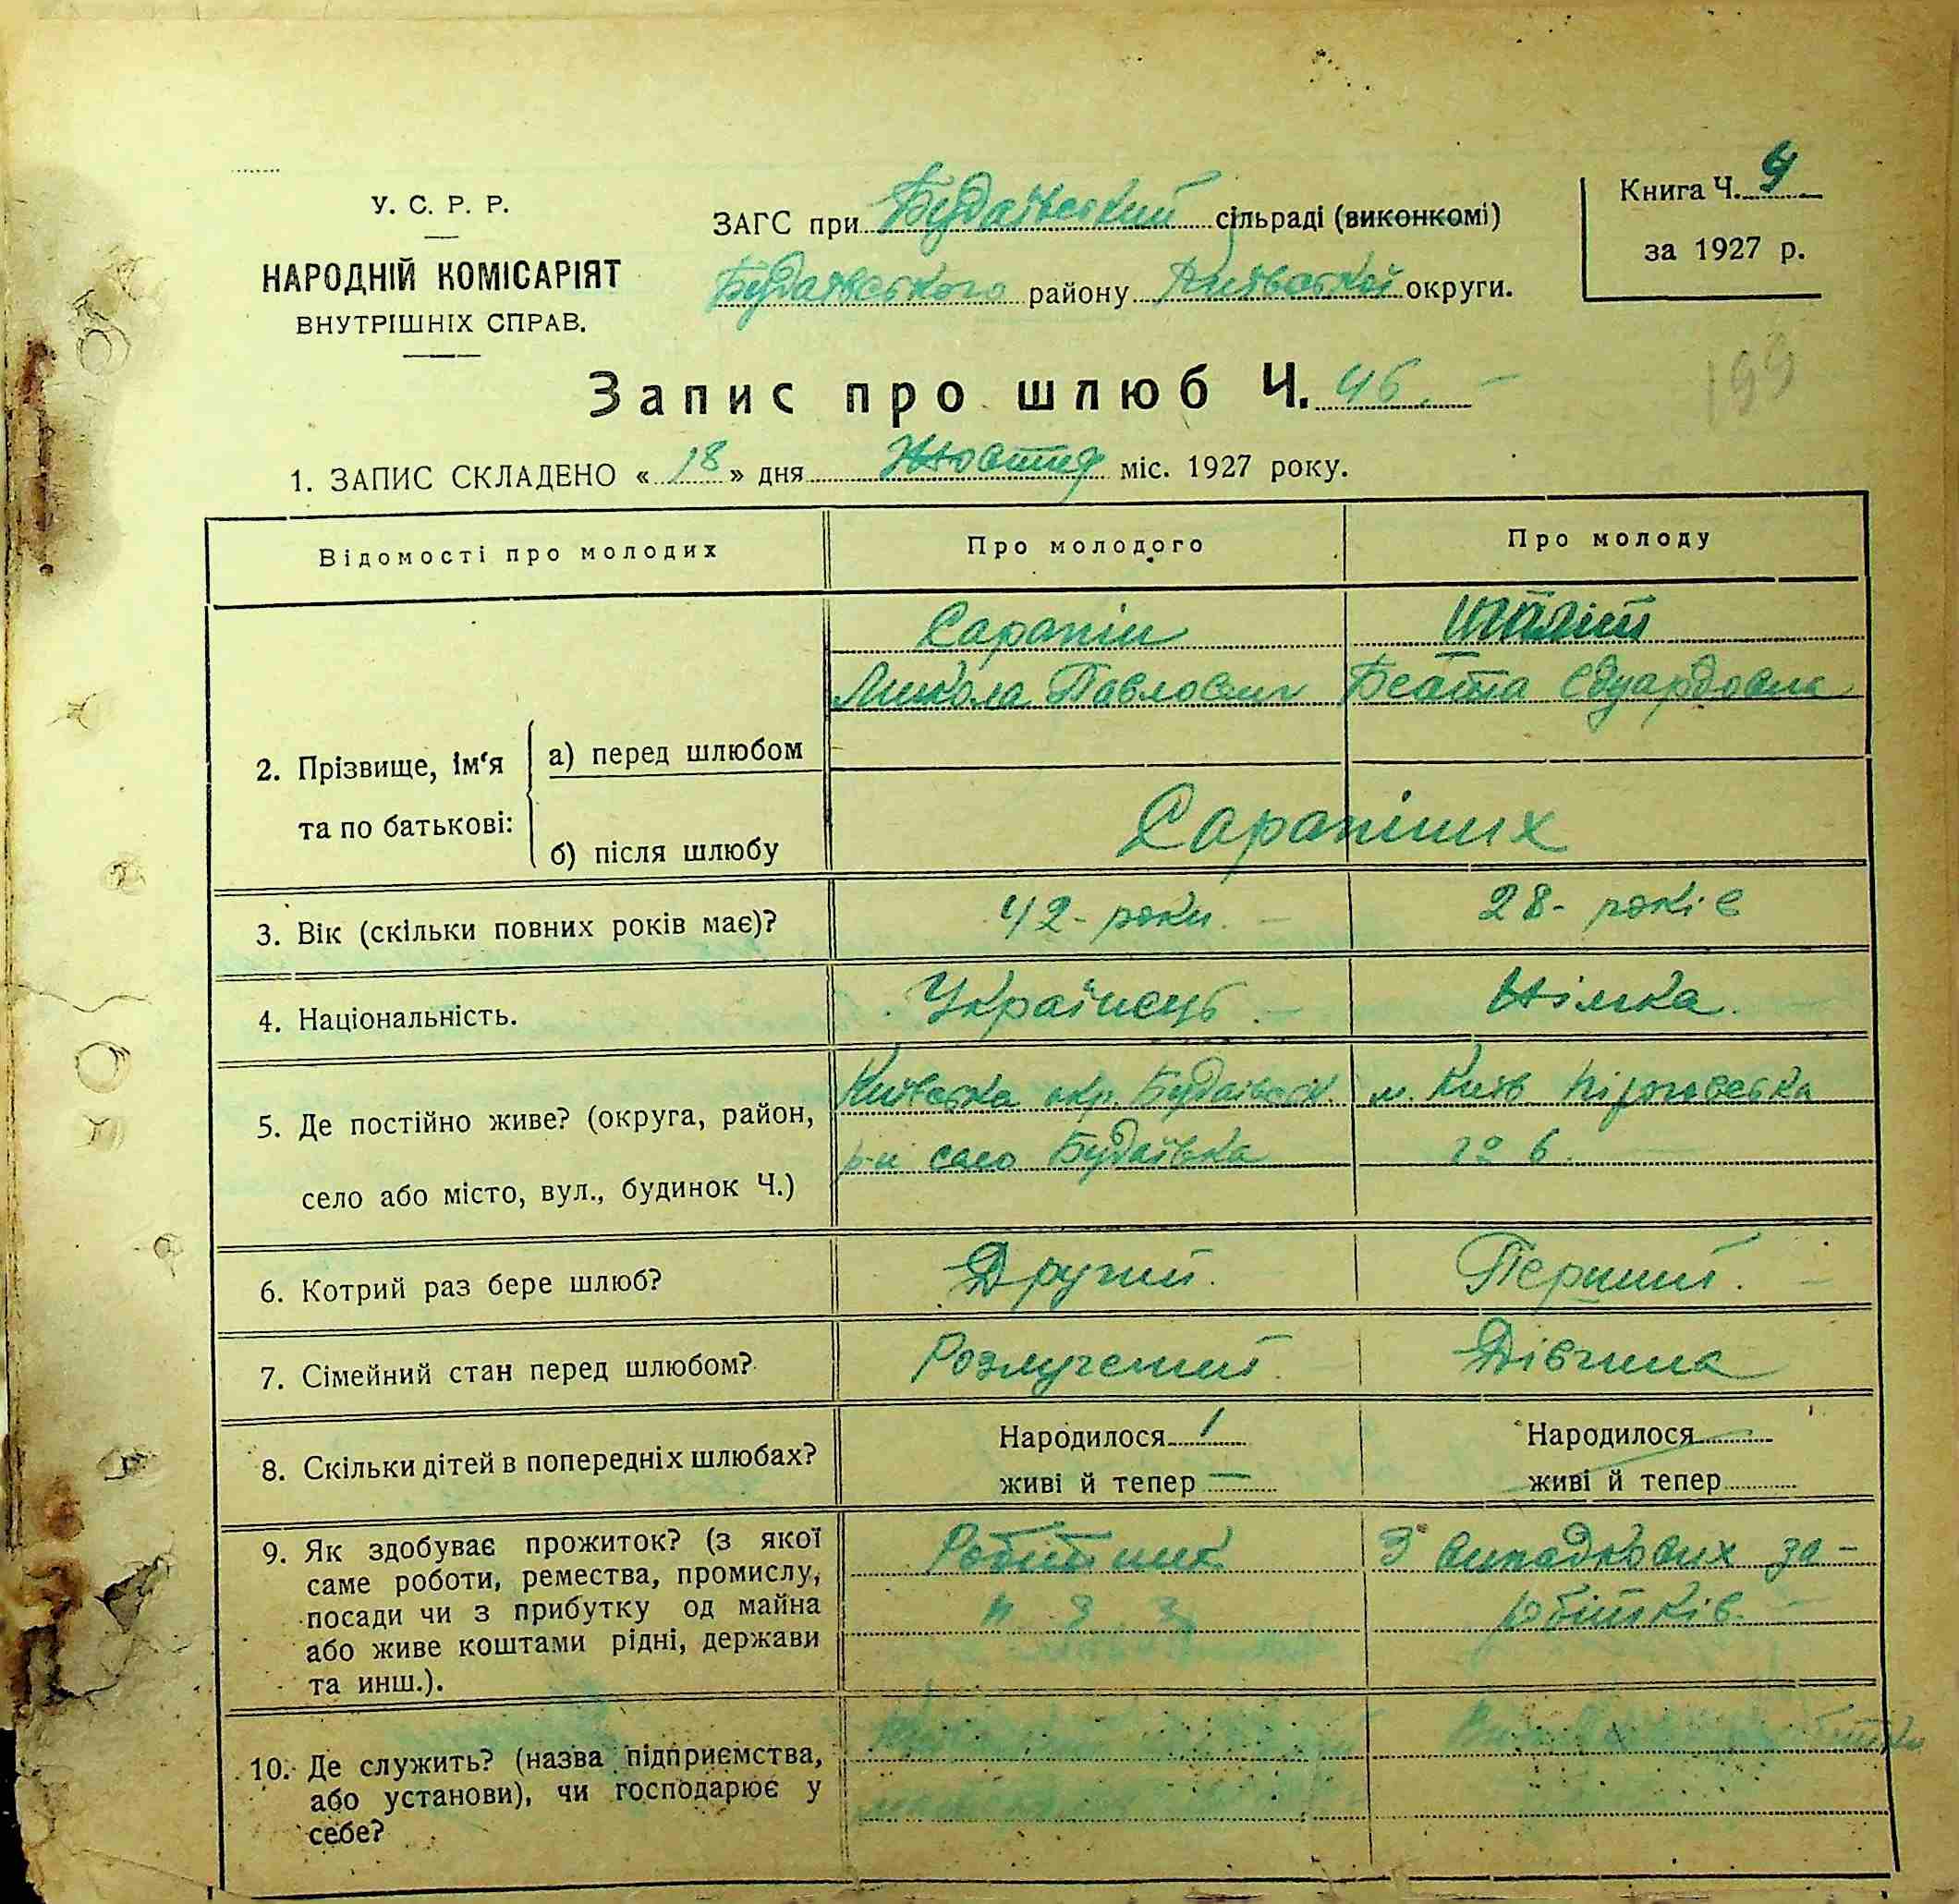 У. С. Р. Р.
НАРОДНІЙ КОМІСАРІЯТ
ВНУТРІШНІХ СПРАВ.
ЗАГС при Будаївский сільраді (виконкомі)
Будаївського району Київської округи.
Книга Ч.
за 1927 р.
Запис про шлюб Ч. 46.
199
1. ЗАПИС СКЛАДЕНО « 18 » дня Жовтня міс. 1927 року.
Відомості про молодих
Про молодого
Про молоду
2. Прізвище, ім‘я
та по батькові:
а) перед шлюбом
Сарапін
Микола Павлович
Беата Едуардовна
б) після шлюбу
Сарапіних
3. Вік (скільки повних років має)?
42 - роки.
28 - років
4. Національність.
Українець
Німка.
5. Де постійно живе? (округа, район,
село або місто, вул., будинок Ч.)
Київська окр. Будаівськ.
р-н село Будаївка
м. Київ
№ 6.
6. Котрий раз бере шлюб?
Другий.
Перший.
7. Сімейний стан перед шлюбом?
Розлучений.
Дівчина
8. Скільки дітей в попередніх шлюбах?
Народилося 1
живі й тепер —
Народилося
живі й тепер
9. Як здобуває прожиток? (з якої
саме роботи, ремества, промислу,
посади чи з прибутку од майна
або живе коштами рідні, держави
та инш.).
Робітник
З випадкових за-
робітків.
10. Де служить? (назва підприємства,
або установи), чи господарює у
себе?